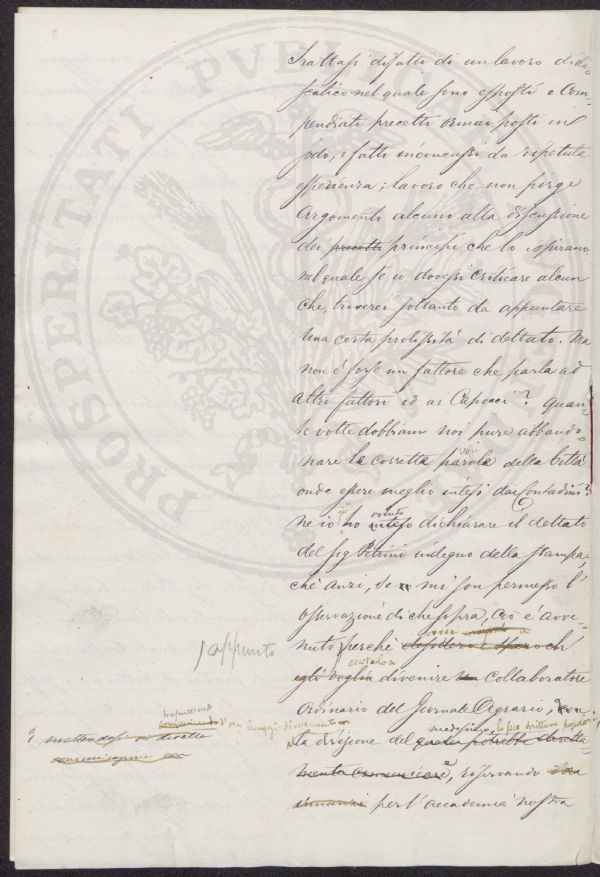 PROSPERITATI PVBLICAE
Trattasi difatti di un lavoro dida-
scalico nel quale sono esposti e Com-
pendiati precetti ormai posti in
sodo, e fatti inconcussi da ripetuta
esperienza; lavoro che non porge
Argomento alcuno alla discussione
dei precetti principii che lo ispirano
nel quale se io dovessi criticare alcun
che, troverei soltanto da appuntare
Una certa prolissità di dettato. Ma
non è forse un fattore che parla ad
altri fattori ed ai Capocci? quan-
te volte dobbiam noi pure abbando-
nare la corretta parola della Città
onde essere meglio intesi dai Contadini?
voluto
Ne io ho inteso dichiarare il dettato
del sig Petrini indegno della stampa,
chè anzi, se mi son permesso l'
osservazione di che sopra, ciò è avve-
nuto perchè desidero e spero ch'
appunto
egli voglia divenire collaboratore
ordinario del Giornale Agrario,
medesimo
la direzione del quale potrebbe
, riservando
innanzi per l'accademia nostra